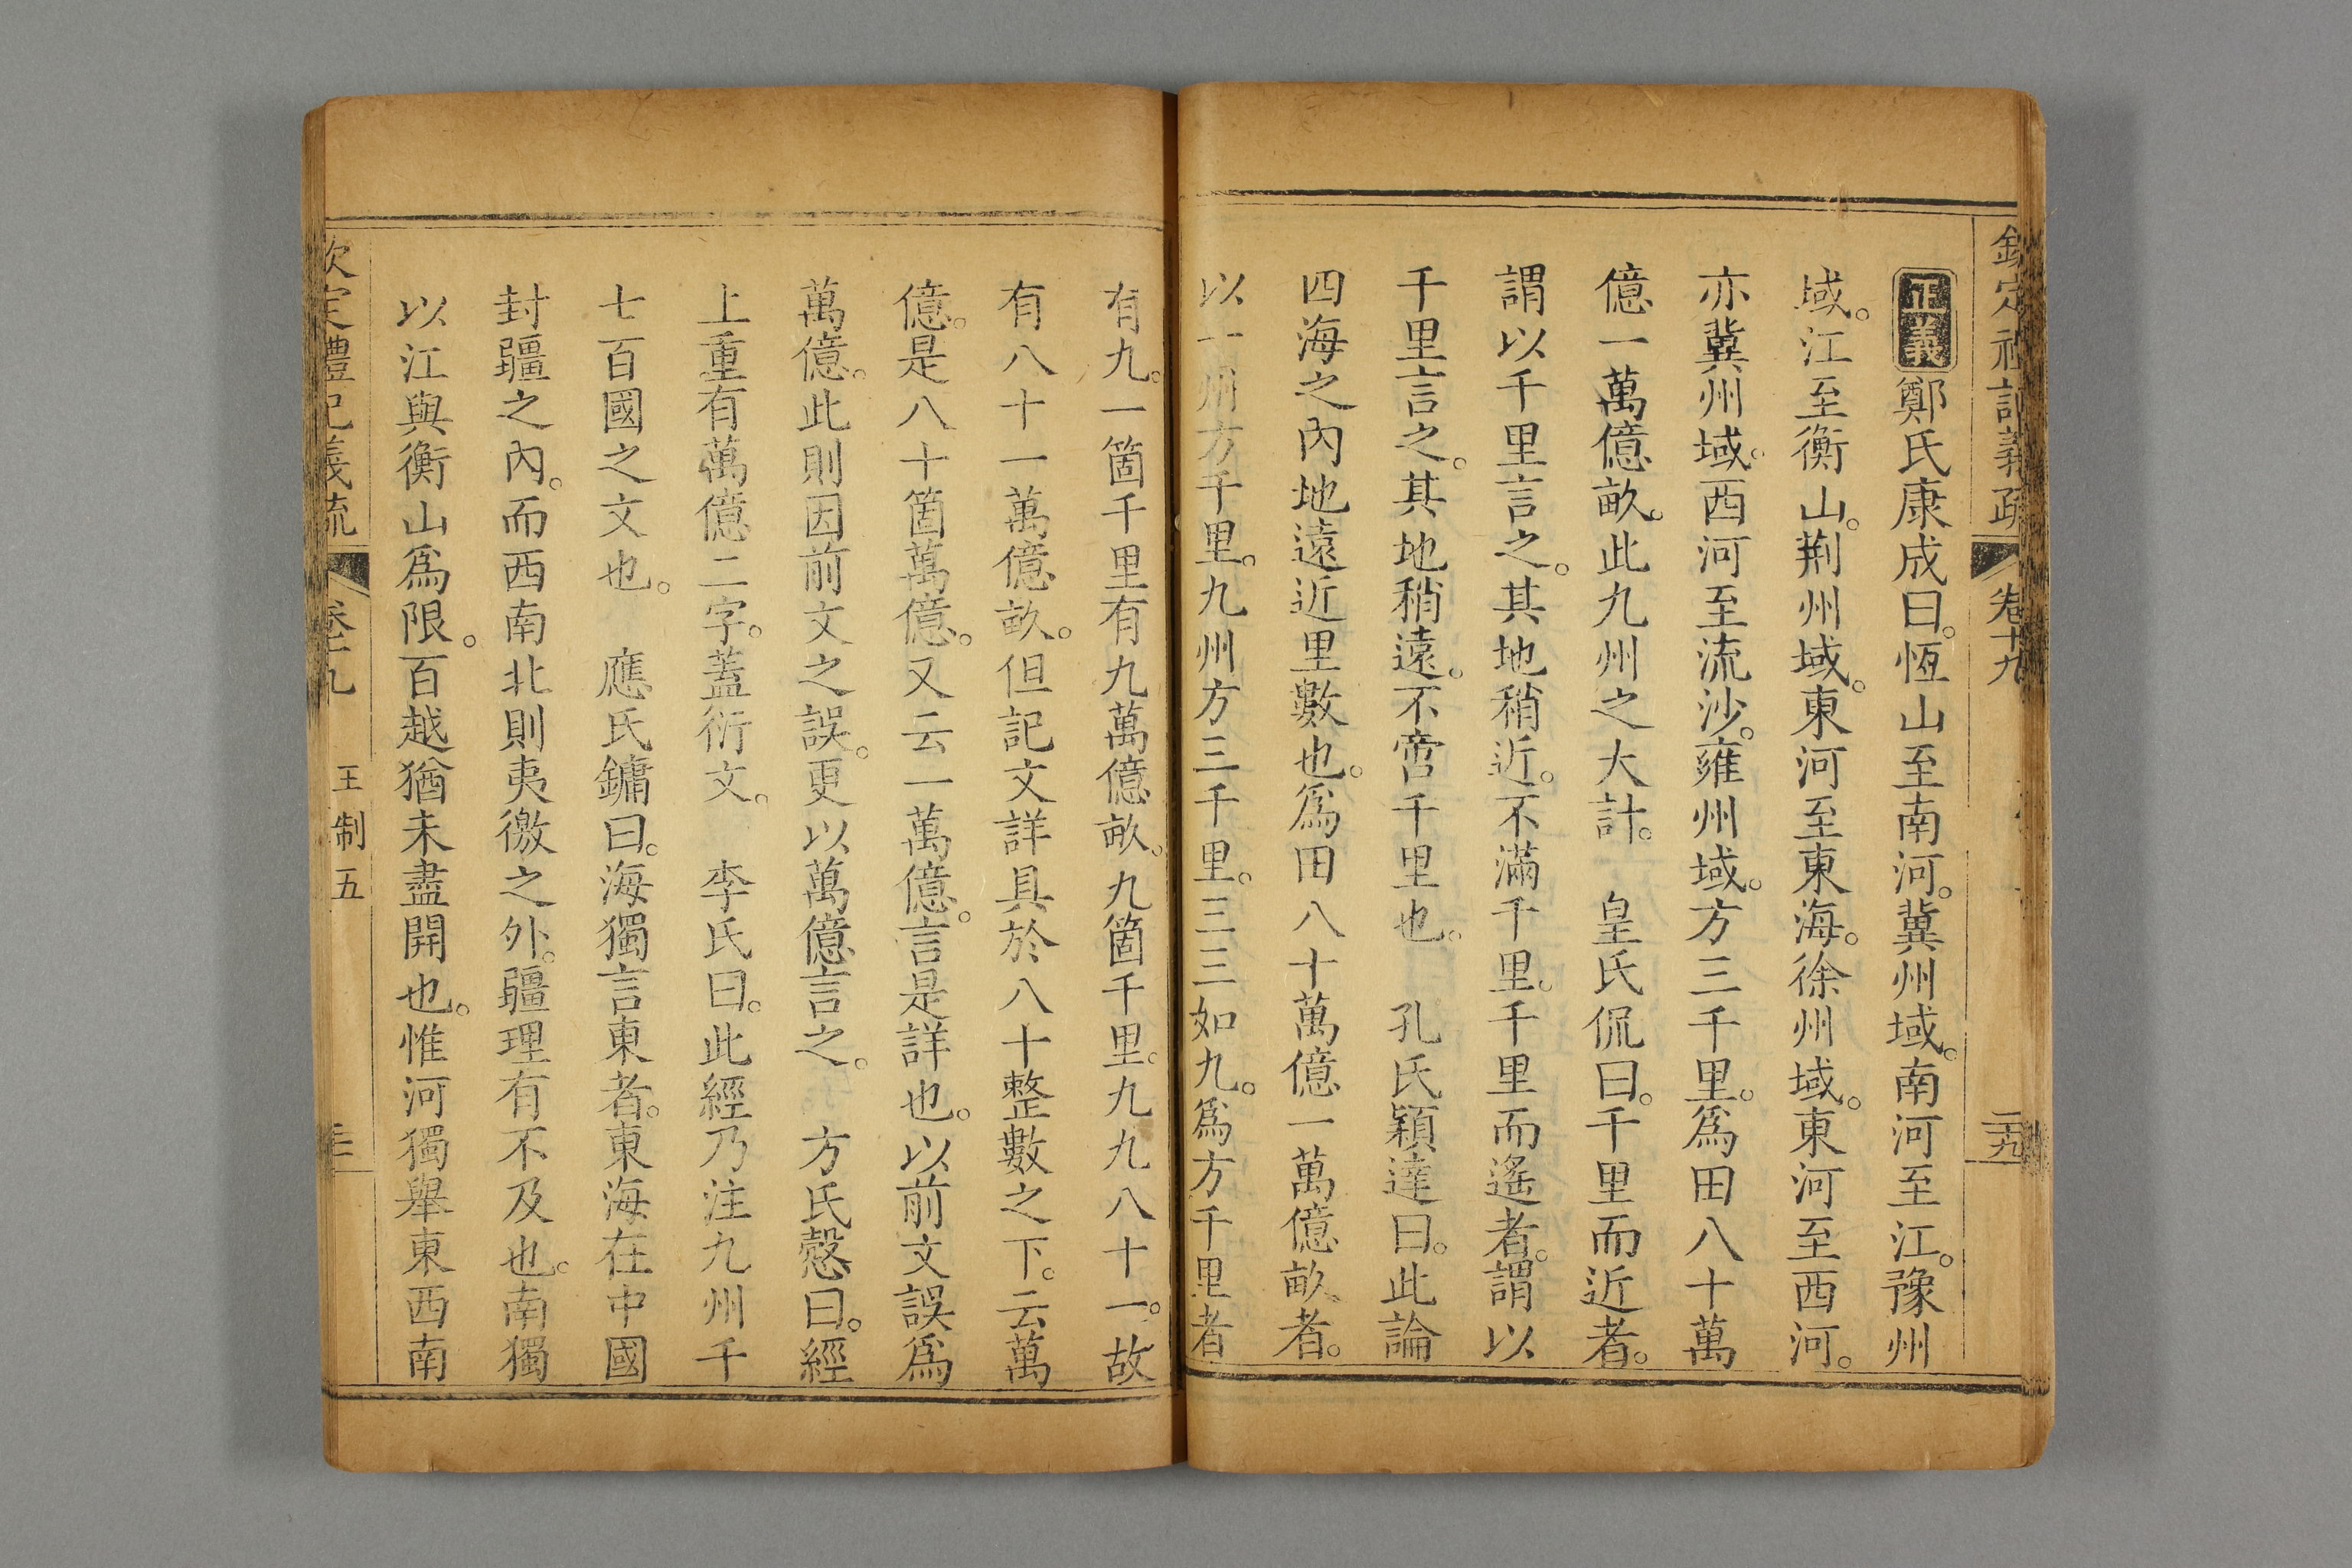 欽定禮記義疏 卷十九 二十九
正義鄭氏康成曰。恆山至南河。冀州域。南河至江。豫州
域。江至衡山。荆州域。東河至東海。徐州域。東河至西河。
亦冀州域。西河至流沙。雍州域。方三千里。爲田八十萬
億一萬億畝。此九州之大計。 皇氏侃曰。千里而近者。
謂以千里言之。其地稍近。不滿千里。千里而遙者。謂以
千里言之。其地稍遠。不啻千里也。 孔氏穎達曰。此論
四海之內地遠近里數也。爲田八十萬億一萬億畝者。
以一州方千里。九州方三千里。三三如九。爲方千里者
有九。一箇千里有九萬億畝。九箇千里。九九八十一。故
有八十一萬億畝。但記文詳具於八十整數之下。云萬
億。是八十箇萬億。又云一萬億。言是詳也。以前文誤爲
萬億。此則因前文之誤。更以萬億言之。 方氏慤曰。經
上重有萬億二字。蓋衍文。 李氏曰。此經乃注九州千
七百國之文也。 應氏鏞曰。海獨言東者。東海在中國
封疆之內。而西南北則夷徼之外。疆理有不及也。南獨
以江與衡山爲限。百越猶未盡開也。惟河獨舉東西南
欽定禮記義疏 卷十九 王制五